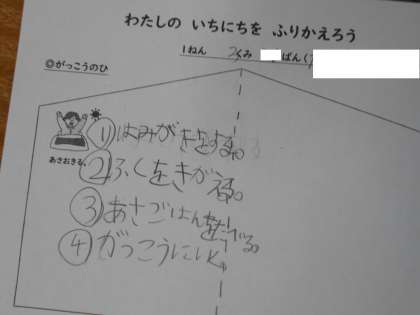 わたしの いちにちを ふりかえろう
1ねん 2くみ ばんく
◎がっこうのひ
あさおきる。
①はみがきをする。
②ふくをきがえる。
③あさごはんをたべる。
④がっこうにいく。